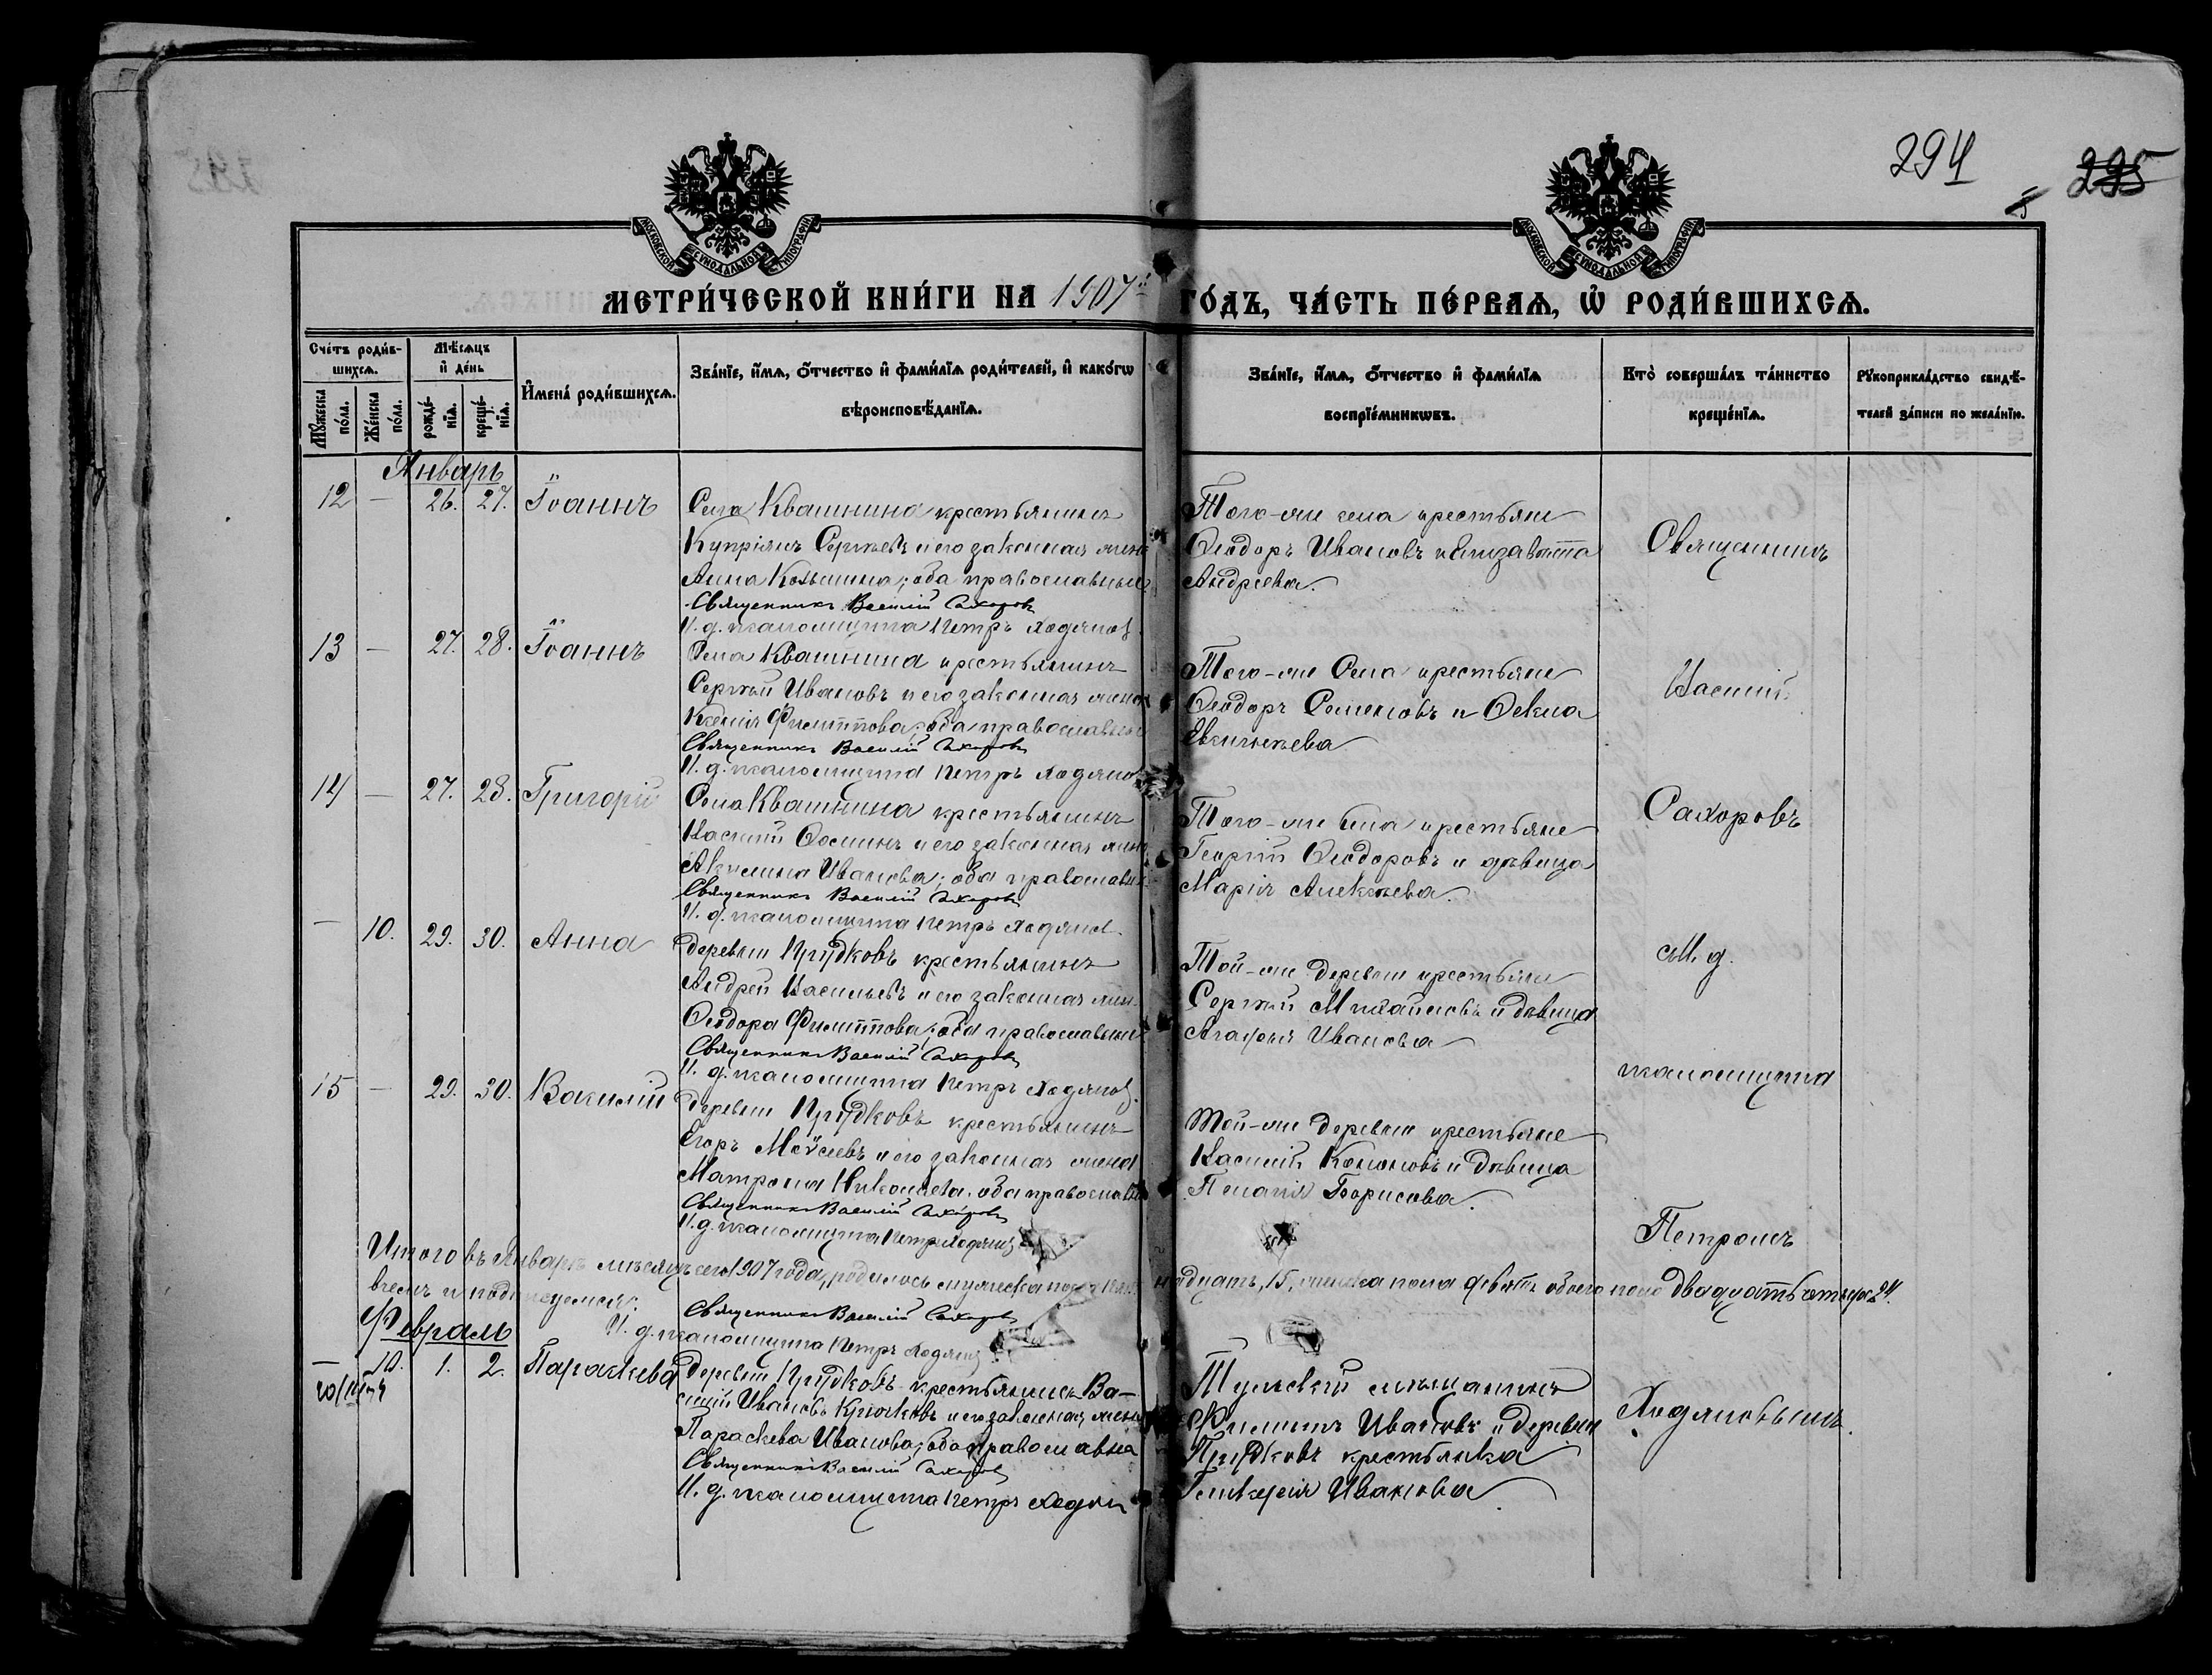 294
295
МОСКОВСКОЙ СѴНОДАЛЬНОЙ ТИПОГРАФІИ
МОСКОВСКОЙ СѴНОДАЛЬНОЙ ТИПОГРАФІИ
МЕТРИ́ЧЕСКОЙ КНИ́ГИ НА 1907й ГО́ДЪ, ЧА́СТЬ ПЕ́РВАЯ, Ѡ҆ РОДИ́ВШИХСЯ.
Сче́тъ роди́вшихся.
Му́жеска по́ла.
Же́нска по́ла.
Мѣ́сяцъ и҆ де́нь
рожде́нїя.
креще́нїя.
И҆мена̀ роди́вшихся.
Зва́нїе, и҆́мя, ѻ҆́тчество и҆ фами́лїя роди́телей, и҆ како́гѡ
вѣроисповѣ́данїя.
Зва́нїе, и҆́мя, ѻ҆́тчество и҆ фами́лїя
воспрїе́мникѡвъ.
Кто̀ соверша́лъ та́инство
креще́нїя.
Рꙋкоприкла́дство свидѣ́-
телей за́писи по жела́нїю.
Январь
12 — 26. 27. Іоаннъ
Села Квашнина крестьянинъ
Купріянъ Сергѣевъ и его законная жена
Анна Козьмина; оба православные
Священникъ Василій Сахаровъ
И. д. псаломщика Петръ Ходяновъ
Того-же села крестьяне
Ѳеодоръ Ивановъ и Елизавета
Андреева.
13 — 27. 28. Іоаннъ
Села Квашнина крестьянинъ
Сергѣй Ивановъ и его законная жена
Ксенія Филиппова; оба православные
Священникъ Василій Сахаровъ
И. д. псаломщика Петръ Ходянов
Того-же Села крестьяне
Ѳеодоръ Семеновъ и Ѳекла
14 — 27. 28. Григорій
Села Квашнина крестьянинъ
Василій Ѳоминъ и его законная жена
Акилина Иванова; оба православн
Священникъ Василій Сахаровъ
И. д. псаломщика Петръ Ходянов
Того-же села крестьяне
Георгій Ѳеодоровъ и дѣвица
Марія Алексѣева.
— 10. 29. 30. Анна
деревни Прудковъ крестьянинъ
Андрей Васильевъ и его законная жен
Ѳеодора Филиппова; оба православные
Священникъ Василій Сахаровъ
И. д. псаломщика Петръ Ходянов.
Той-же деревни крестьяне
Сергѣй Михайловъ и дѣвица
Агафья Иванова
15 — 29. 30. Василій
деревни Прудковъ крестьянинъ
Егоръ Моѵсеевъ и его законная жена
Матрона Николаева, оба православн
Священникъ Василій Сахаровъ
И. д. псаломщика Петръ Ходянов
Той-же деревни крестьяне
Василій Кононовъ и дѣвица
Пелагія Борисова.
Священникъ
Василій
Сахаровъ
и И. д.
псаломщика
Петромъ
Ходяновымъ.
Итого въ Январѣ мѣсяцѣ сего 1907 года, родилось мужеска пола надцать, 15, женска пола девять обоего пола двадцать четыре 24.
Священникъ Василій Сахаровъ
И. д. псаломщика Петръ Ходянов
Февраль
— 10. 1. 2. Параскева
деревни Прудковъ крестьянинъ Ва-
силій Ивановъ Крючковъ и его законная жена
Параскева Иванова; оба православна
Священникъ Василій Сахаровъ
И. д. псаломщика Петръ Ходян
Тульскій мѣщанинъ
Филиппъ Ивановъ и деревни
Прудковъ крестьянка
Гликерія Иванова